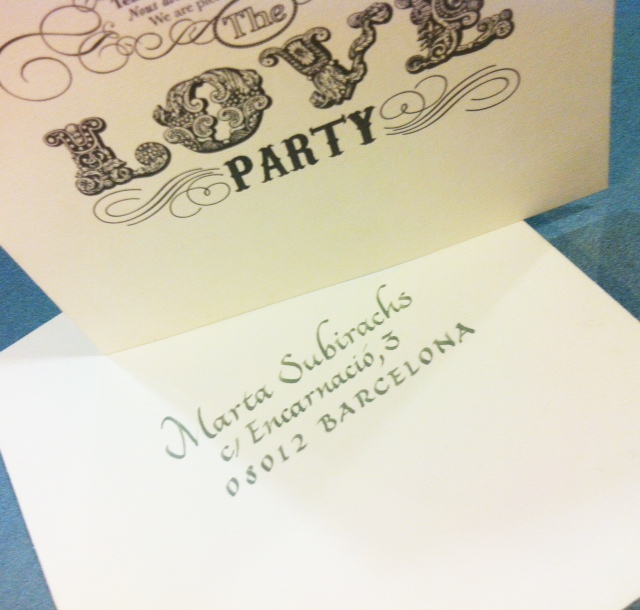 Nous
We are
The
LOVE
PARTY
Marta Subirachs
c/ Encarnació, 3
08012 BARCELONA